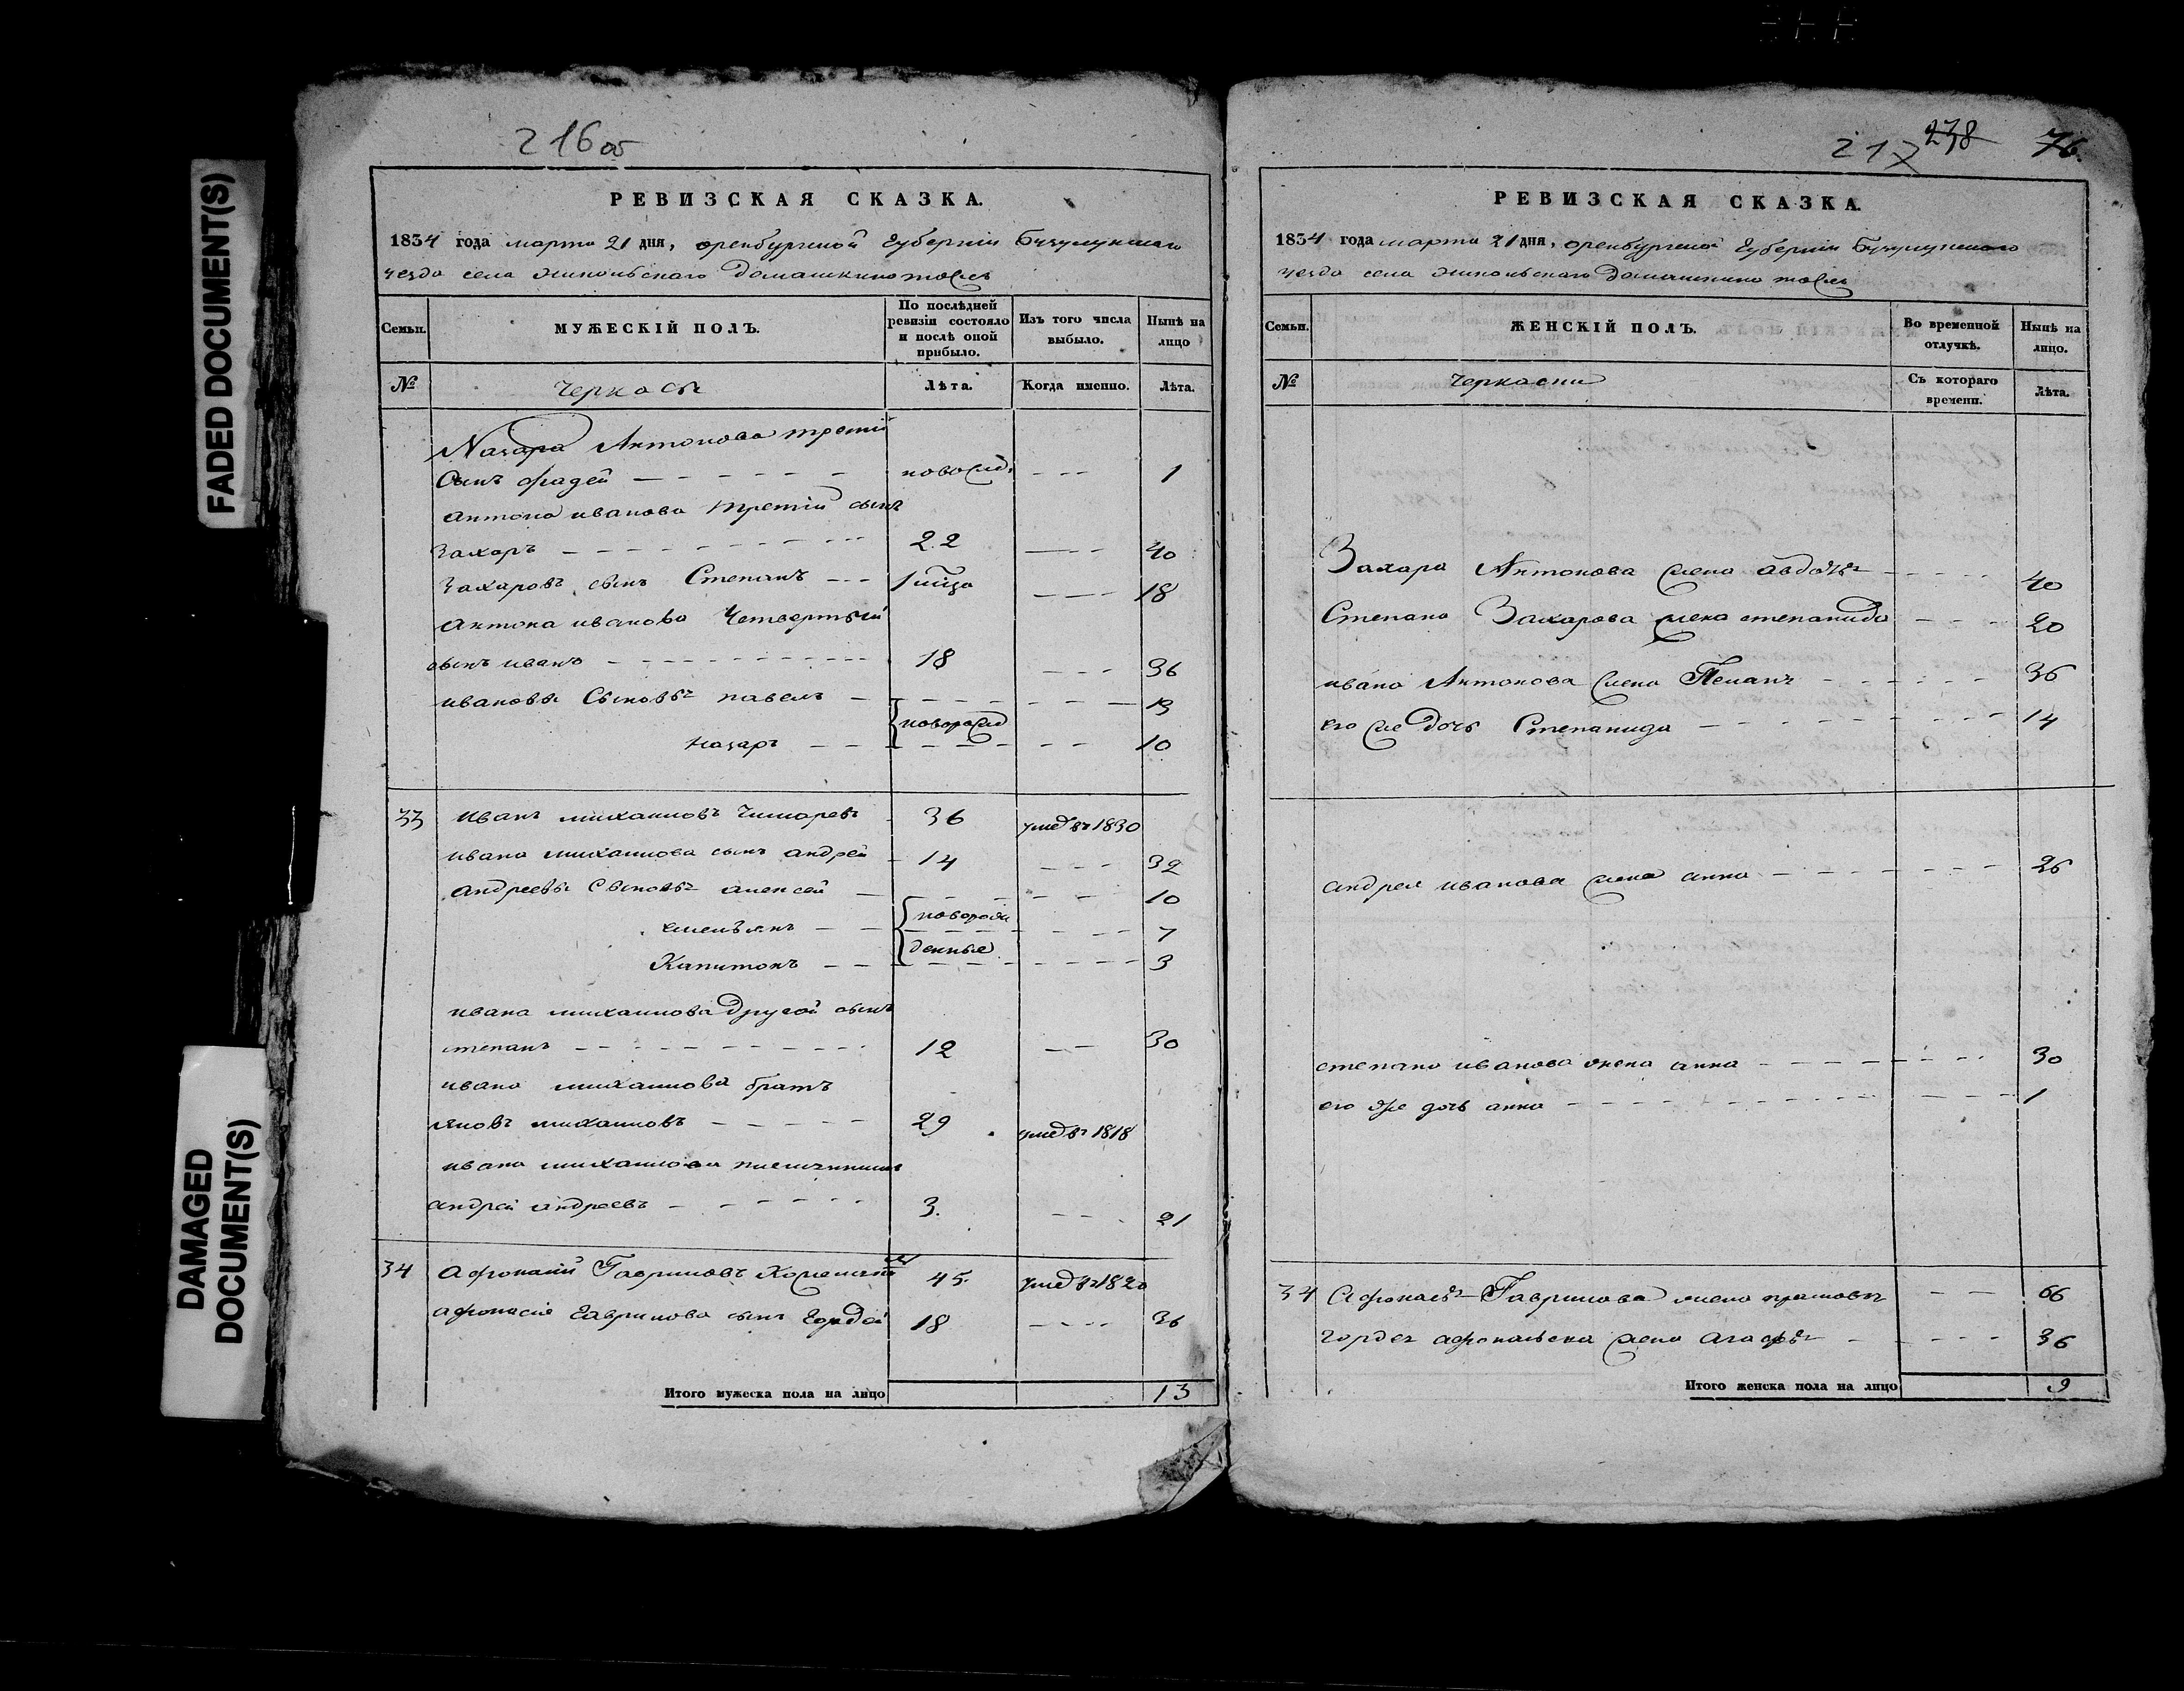 FADED DOCUMENT(S)
DAMAGED DOCUMENT(S)
216 об
РЕВИЗСКАЯ СКАЗКА.
1834 года марта 21 дня, оренбургской губернии Бузулукскаго
уезда села Никольскаго Домашкино тожъ
Семьи. МУЖЕСКІЙ ПОЛЪ. По послѣдней ревизіи состояло и послѣ оной прибыло. Изъ того числа выбыло. Нынѣ на лицо
№ Черкасы Лѣта. Когда именно. Лѣта.
Назара Антонова третий
сынъ фадей новорожд. 1
антона иванова третий сынъ
Захаръ 22 40
Захаровъ сынъ Степанъ 18
антона иванова Четвертый
сынъ иванъ 18 36
ивановы Сыновья павелъ 13
новорожд
назаръ 10
33 иванъ михаиловъ 36 умер въ 1830
ивана михаилова сынъ андрей 14 32
андреевы Сыновья алексей 10
новорож
емельянъ 7
денные
Капитонъ 3
ивана михаилова другой сынъ
степанъ 12 30
ивана михаилова братъ
яковъ михаиловъ 29 умер въ 1818
ивана михаилова племянникъ
андрей андреевъ 3. 21
34 афонасий Гавриловъ 45. умер въ 1820
афонасия Гаврилова сынъ Гордей 18 36
Итого мужеска пола на лицо 13
217 238 76.
РЕВИЗСКАЯ СКАЗКА.
1834 года марта 21 дня, оренбургской губернии Бузулукскаго
уезда села Никольскаго Домашкино тожъ
Семьи. ЖЕНСКІЙ ПОЛЪ. Во временной отлучкѣ. Нынѣ на лицо.
№ Черкаски Съ котораго времени. Лѣта.
Захара Антонова жена авдотья 40
Степана Захарова жена степанида 20
ивана Антонова жена 36
его же дочь Степанида 14
андрея иванова жена анна 26
степана иванова жена анна 30
его же дочь анна 1
34 Афонасья Гаврилова жена 66
гордея афонасьева жена Агафья 36
Итого женска пола на лицо 9